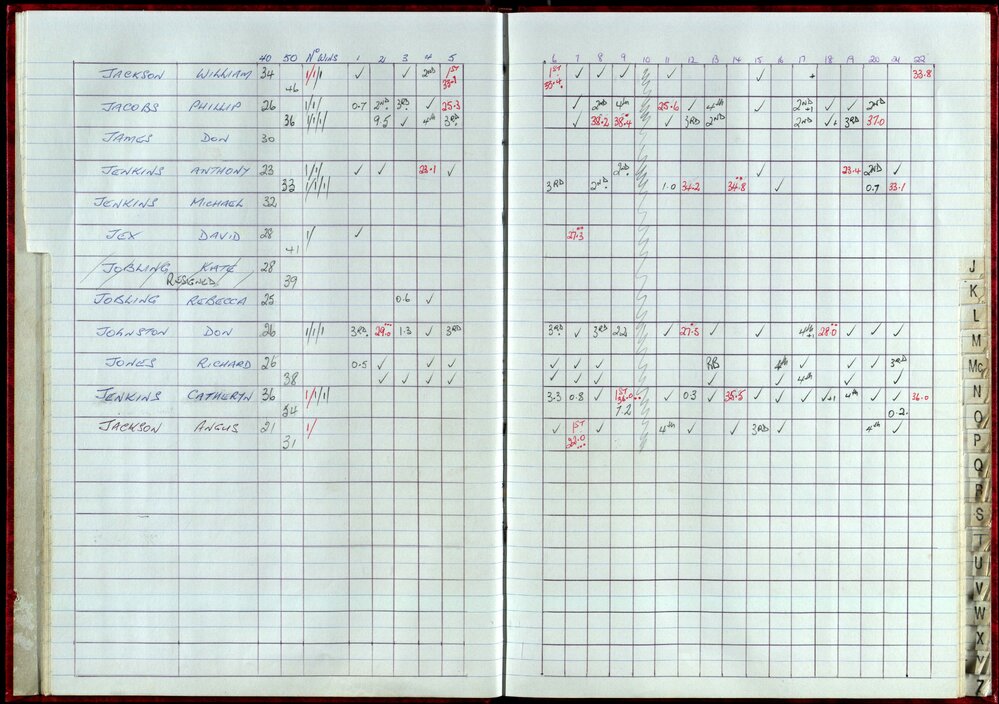 40 50 No WINS 1 2 3 4 5 6 7 8 9 10 11 12 13 14 15 16 17 18 19 20 21 22
JACKSON WILLIAM 34 1/1/1 ✓ ✓ 2ND 1ST 1ST ✓ ✓ ✓ ✓ ✓ + 33.8
46 33.9 33.4
JACOBS PHILLIP 26 1/1/ 0.7 2ND 3RD ✓ 25.3 ✓ 2ND 4th 25.6 ✓ 4th ✓ 2ND ✓ ✓ 2ND
36 1/1/1/ 9.5 ✓ 4th 3RD ✓ 38.2 38.4 ✓ 3RD 2ND 2ND ✓+ 3RD 37.0
JAMES DON 30
JENKINS ANTHONY 23 1/1/ ✓ ✓ 23.1 ✓ 2ND ✓ 23.4 2ND ✓
33 1/1/1/ 3RD 2ND 1.0 34.2 34.8 ✓ 0.7 33.1
JENKINS MICHAEL 32
JEX DAVID 28 1/ ✓ 27.3
41
JOBLING KATE 28
RESIGNED 39
JOBLING REBECCA 25 0.6 ✓
JOHNSTON DON 26 1/1/1 3RD 29.0 1.3 ✓ 3RD 3RD ✓ 3RD 2.2 ✓ 27.5 ✓ ✓ 4th+1 28.0 ✓ ✓ ✓
JONES RICHARD 26 0.5 ✓ ✓ ✓ ✓ ✓ ✓ RB 4th ✓ ✓ ✓ 3RD
38 ✓ ✓ ✓ ✓ ✓ ✓ ✓ ✓ ✓ 4th ✓ ✓
JENKINS CATHERYN 36 1/1/1 3.3 0.8 ✓ 1ST 36.0 ✓ 0.3 ✓ 35.5 ✓ ✓ ✓ ✓+1 4th ✓ ✓ 36.0
54 1.2 0.2
JACKSON ANGUS 21 1/ ✓ 1ST ✓ ✓ 4th ✓ ✓ 3RD ✓ 4th ✓
31 32.0
J
K
L
M
Mc
N
O
P
Q
R
S
T
U
V
W
X
Y
Z